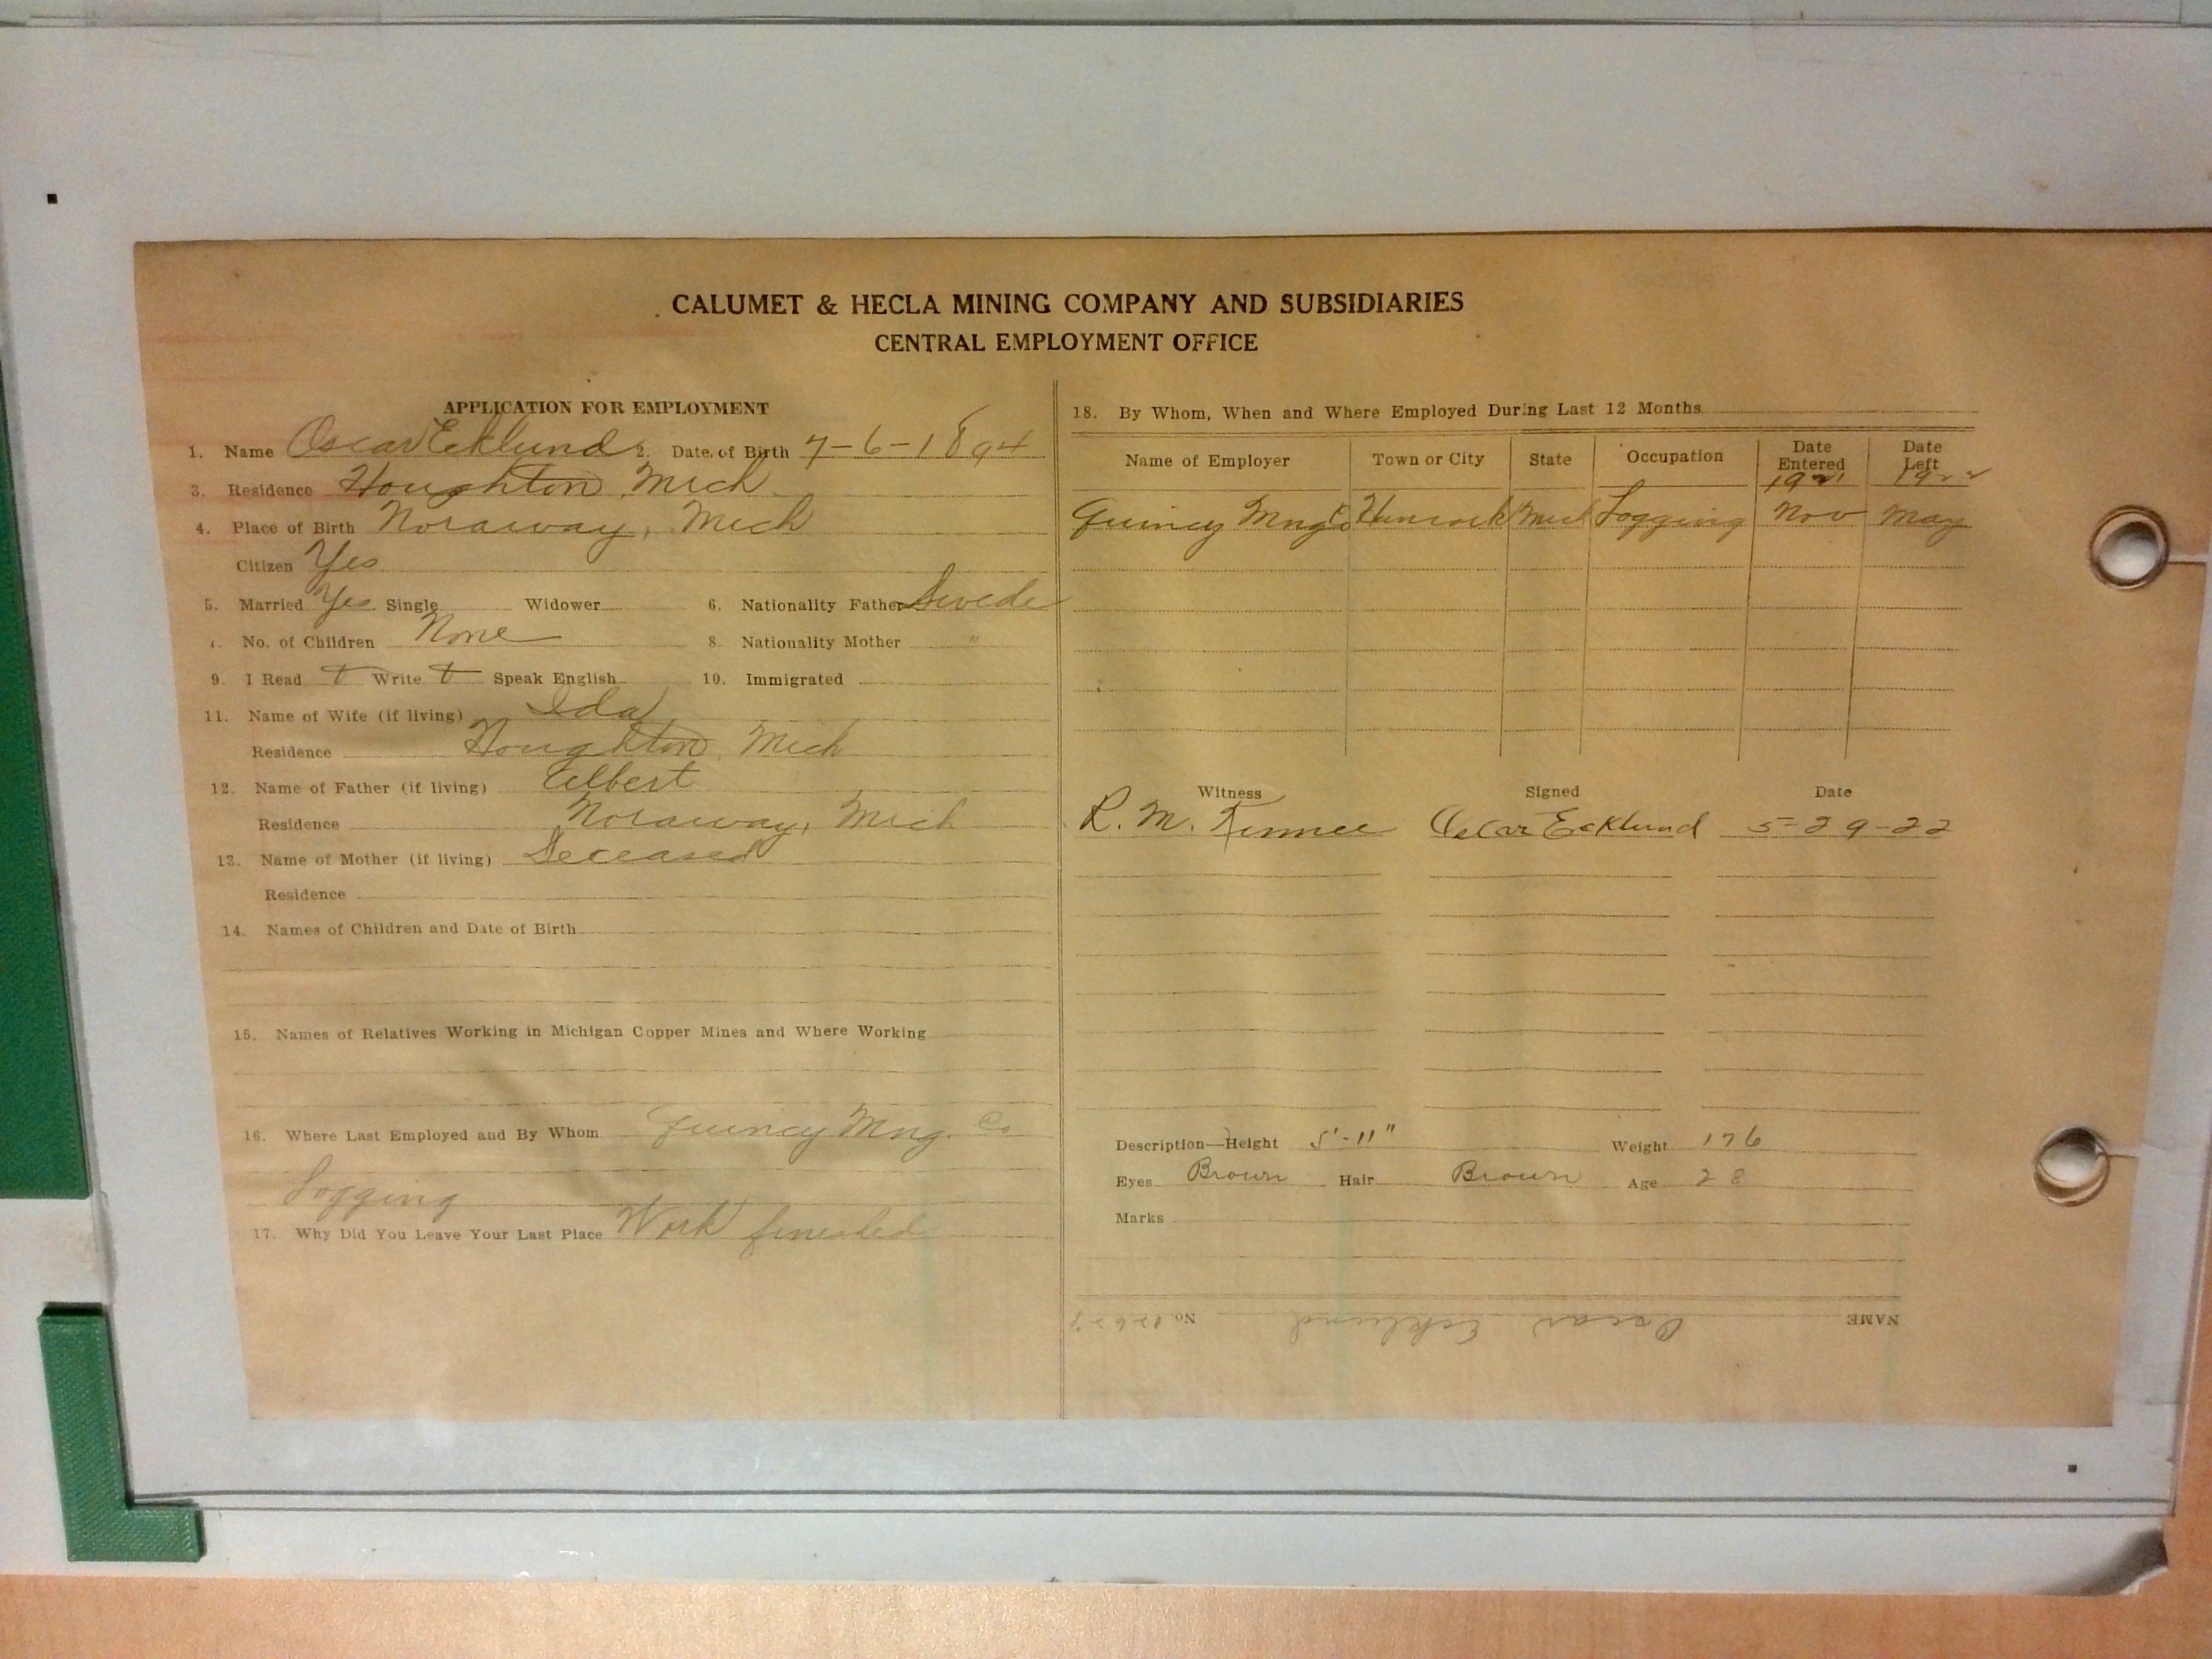 CALUMET & HECLA MINING COMPANY AND SUBSIDIARIES
CENTRAL EMPLOYMENT OFFICE
APPLICATION FOR EMPLOYMENT
1. Name Oscar Ecklund 2. Date of Birth 7-6-1894
3. Residence Houghton, Mich
4. Place of Birth Noraway, Mich
Citizen Yes
5. Married Yes Single Widower 6. Nationality Father Swede
7. No. of Children None 8. Nationality Mother "
9. I Read † Write † Speak English 10. Immigrated
11. Name of Wife (if living) Ida
Residence Houghton, Mich
12. Name of Father (if living) Albert
Residence Noraway, Mich
13. Name of Mother (if living) Deceased
Residence
14. Names of Children and Date of Birth
15. Names of Relatives Working in Michigan Copper Mines and Where Working
16. Where Last Employed and By Whom Quincy Mng. Co
Logging
17. Why Did You Leave Your Last Place Work finished
18. By Whom, When and Where Employed During Last 12 Months
Name of Employer Town or City State Occupation Date Entered Date Left
1921 1922
Quincy Mng Co Hancock Mich Logging Nov May
Witness Signed Date
R. M. Oscar Ecklund 5-29-22
Description—Height 5'-11" Weight 176
Eyes Brown Hair Brown Age 28
Marks
NAME Oscar Ecklund No. 12627